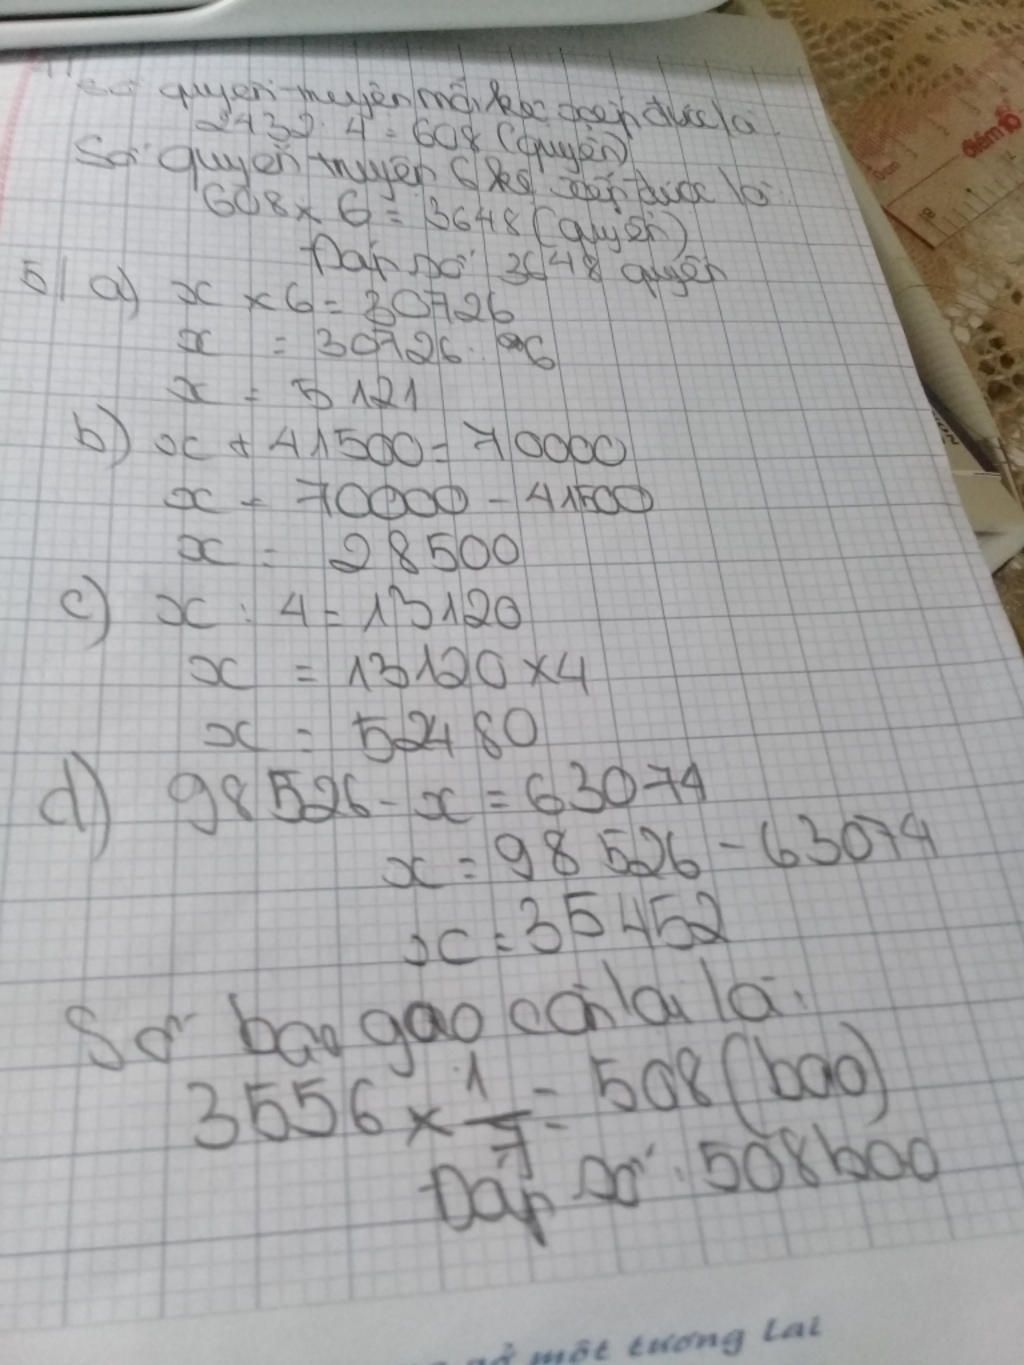 Số quyển truyện mỗi kệ xếp được là
2432 : 4 = 608 (quyển)
Số quyển truyện 6 kệ xếp được là
608 x 6 = 3648 (quyển)
Đáp số 3648 quyển
5/ a) x x 6 = 30726
x = 30726 : 6
x = 5121
b) x + 41500 = 70000
x = 70000 - 41500
x = 28500
c) x : 4 = 13120
x = 13120 x 4
x = 52480
d) 98526 - x = 63074
x = 98526 - 63074
x = 35452
Số bao gạo còn lại là:
3556 x 1/7 = 508 (bao)
Đáp số : 508 bao
một tương lai
điểm 10